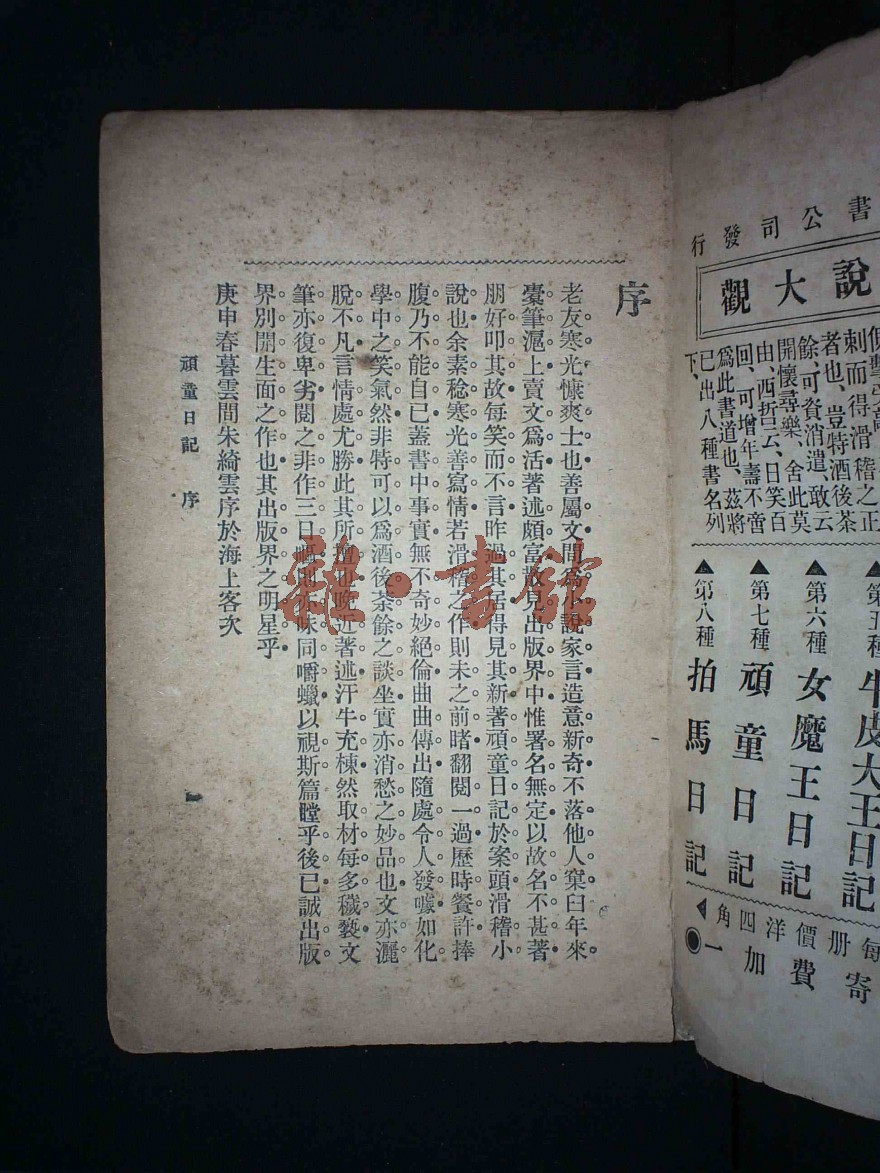 書公司發行
說大觀
刺而得滑稽之正
者也、豈特酒後茶
餘、可資消遣、敢云
開懷尋樂、舍此莫
由、西哲云、日笑百
回、可增年壽不啻
爲此書道也、茲將
已出八種書名列
下、
▲第五種 牛皮大王日記
▲第六種 女魔王日記
▲第七種 頑童日記
▲第八種 拍馬日記
每册價洋四角
寄費加一
序
老友寒光慷爽士也善屬文間爲小說家言造意新奇不落他人窠臼年來
橐筆滬上賣文爲活著述頗富散見出版界中惟署名無定以故名不甚著
朋好叩其故每笑而不言昨過其居得見其新著頑童日記於案頭滑稽小
說也余素稔寒光善寫情若滑稽之作則未之前睹翻閱一過歷時餐許捧
腹乃不能自已蓋書中事實無不奇妙絕倫曲曲傳出隨處令人發噱如化
學中之笑氣然非特可以爲酒後茶餘之談坐實亦消愁之妙品也文亦灑
脫不凡言情處尤勝此其所擅也晚近著述汗牛充棟然取材每多穢褻文
筆亦復卑劣閱之非作三日嘔則亦味同嚼蠟以視斯篇瞠乎後已誠出版
界別開生面之作也其出版界之明星乎
庚申春暮雲間朱綺雲序於海上客次
頑童日記 序
雜·書館